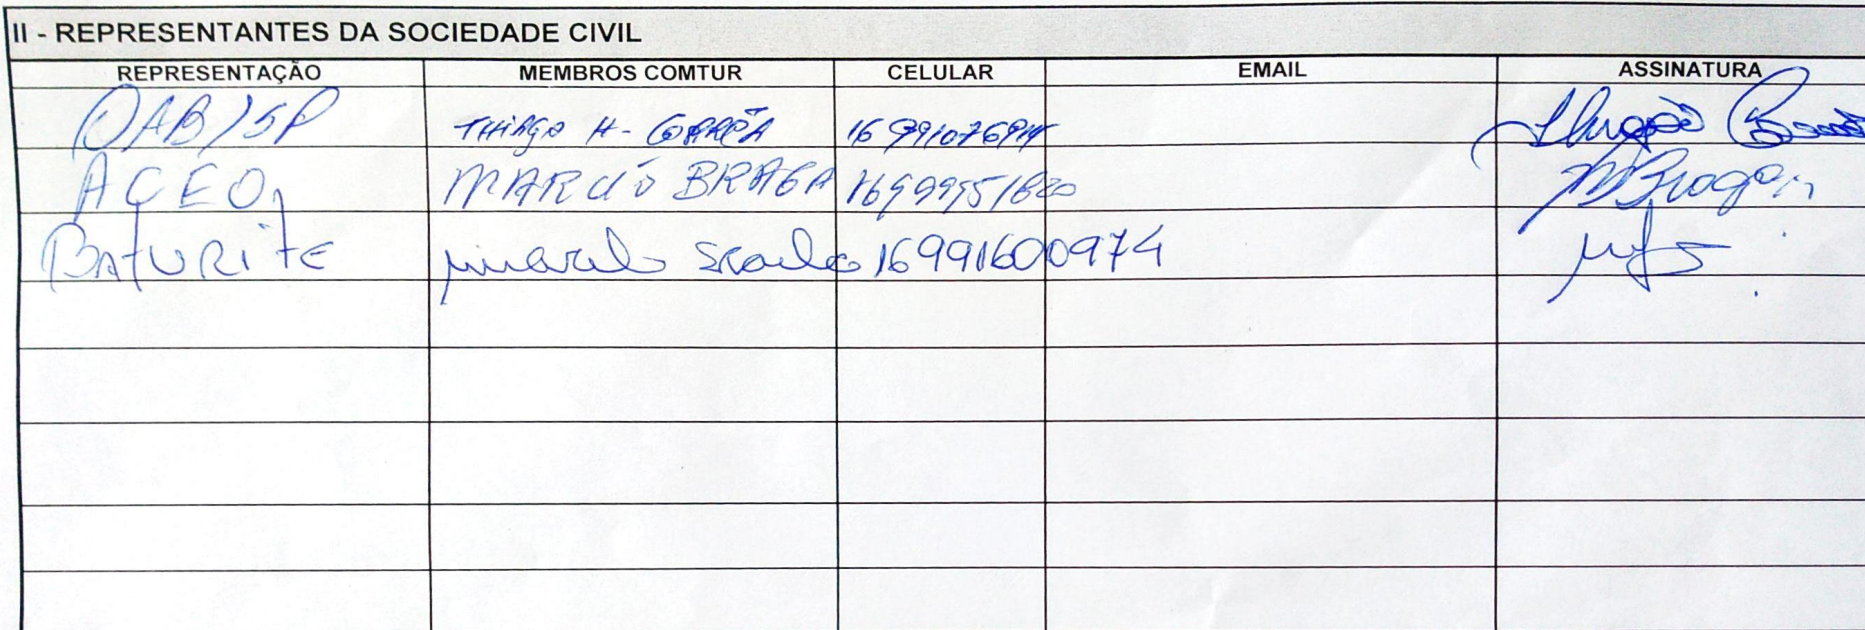 II - REPRESENTANTES DA SOCIEDADE CIVIL
REPRESENTAÇÃO MEMBROS COMTUR CELULAR EMAIL ASSINATURA
OAB/SP THIAGO H- CORRÊA
ACEO MARCIO BRAGA MBraga
BATURITE 16991600974